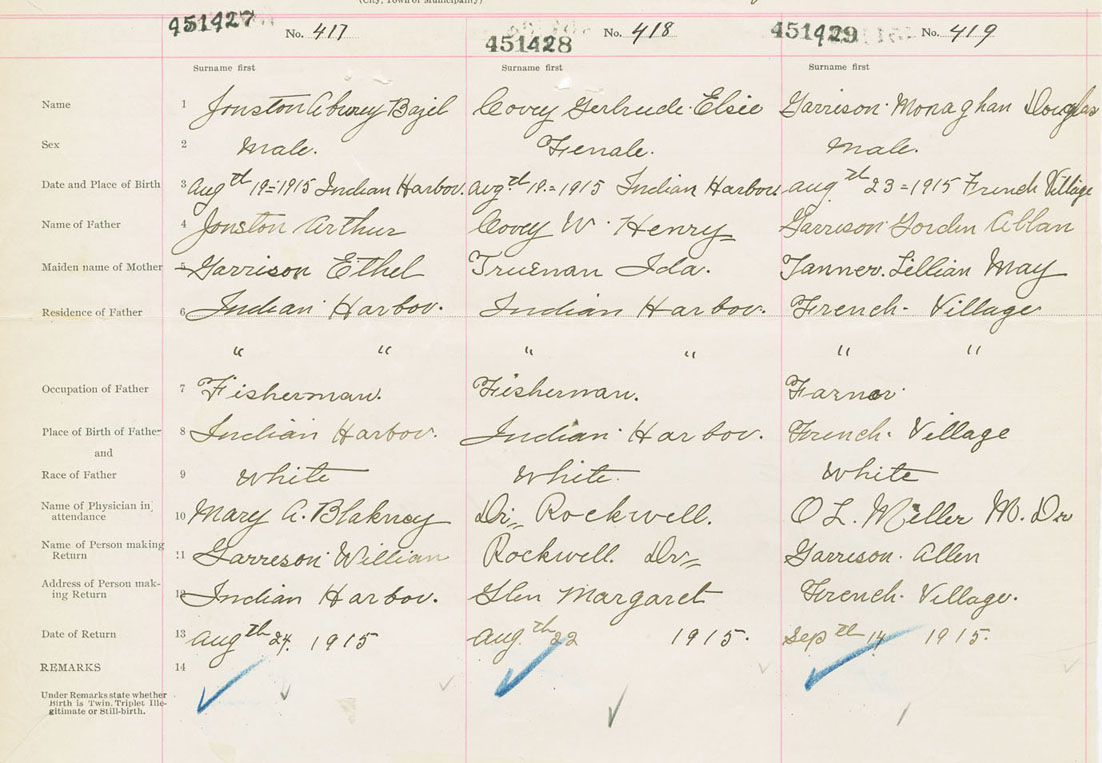 (City, Town or Municipality)
451427 No. 417 451428 No. 418 451429 No. 419
Surname first Surname first Surname first
Name 1 Jonston Aburey Bazil Covey Gertrude Elsie Garrison Monaghan Douglas
Sex 2 Male. Female. Male.
Date and Place of Birth 3 Augth 19=1915 Indian Harbov. Avg.th 19.=1915 Indian Harbov. Aug th 23=1915 French Village
Name of Father 4 Jonston Arthur Covey W. Henry Garrison Gordin Allan
Maiden name of Mother 5 Garrison Ethel Trueman Ida. Tanner. Lillian May
Residence of Father 6 Indian Harbov. Indian Harbov. French. Village
" " " " " "
Occupation of Father 7 Fisherman. Fisherman. Farner
Place of Birth of Father 8 Indian Harbov. Indian Harbov. French. Village
and
Race of Father 9 White White. White
Name of Physician in attendance 10 Mary A. Blakney Dr, Rockwell. O L. Miller M. Dr
Name of Person making Return 11 Garreson Willian Rockwell. Dr, Garrison. Allen
Address of Person making Return 12 Indian Harbov. Glen Margaret French. Village.
Date of Return 13 Aug th 24. 1915 Aug. th 22 1915. Sep th 14 1915.
REMARKS 14
Under Remarks state whether
Birth is Twin, Triplet Ille-
gitimate or Still-birth.